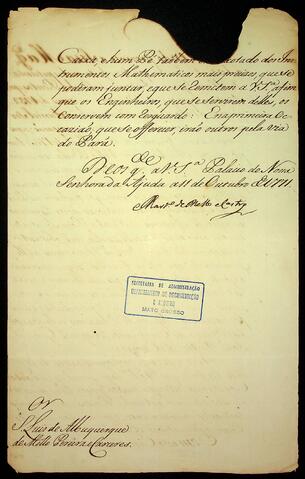 Caixa, e hum Pé também dotado dos Ins-
trumentos Mathematicos mais precizos, que se
poderam juntar, e que se Remetem a V. S.ª afim
que os Engenheiros, que se servirem delles, os
conservem com resguardo: E na primeira Oc-
caziaõ, que se offerecer, iraõ outros pela via
do Pará.
Deos g.de a V. S.ª Palacio de Nossa
Senhora da Ajuda a 11 de Outubro de 1771.
Mart.º de Mello e Castro
SECRETARIA DE ADMINISTRAÇÃO
DEPARTAMENTO DE DOCUMENTAÇÃO
E ARQUIVO
MATO GROSSO
S.r Luis de Albuquerque
de Mello Pereira e Caceres.